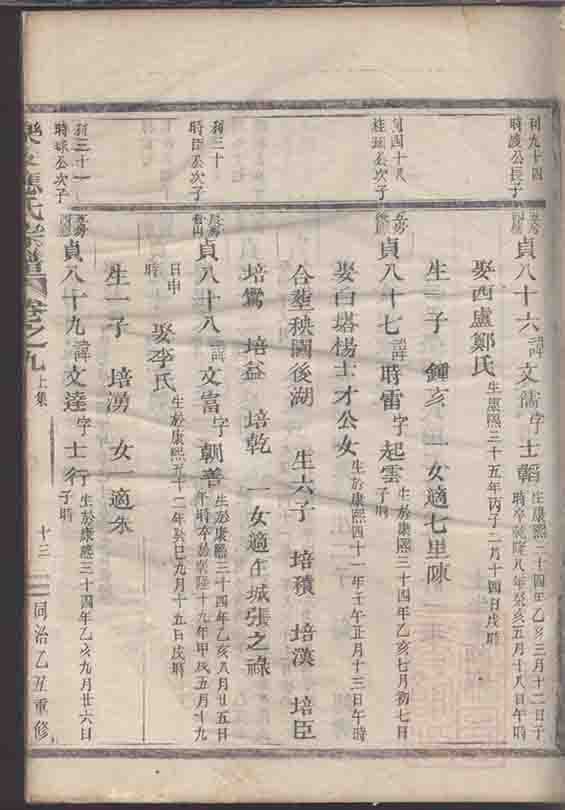 利九十四
時凌公長子
貞八十六 諱文儒 字士韜 生康熙三十四年乙亥三月十二日子
時卒乾隆八年癸亥五月十八日午時
娶西盧鄭氏 生康熙三十五年丙子二月十四日戌時
生一子 鍾亥 一女適七里陳
利四十八
桂 公次子
貞八十七 諱時雷 字起雲 生於康熙三十四年乙亥七月初七日
子時
娶白塔楊士才公女 生於康熙四十一年壬午正月十三日午時
合塟秧田後湖 生六子 培積 培漢 培臣
培鸞 培益 培乾 一女適在城張之祿
利三十
時臣公次子
長房
貞八十八 諱文富 字朝善 生於康熙三十四年乙亥八月廿五日
午時卒於乾隆十九年甲戌五月十九
日申
時 娶李氏 生於康熙五十二年癸巳九月十五日戌時
生一子 培湧 女一適朱
利三十一
時球公次子
貞八十九 諱文達 字士行 生於康熙三十四年乙亥九月廿六日
子時
應氏宗譜 卷之九 上集 十三 同治乙丑重修